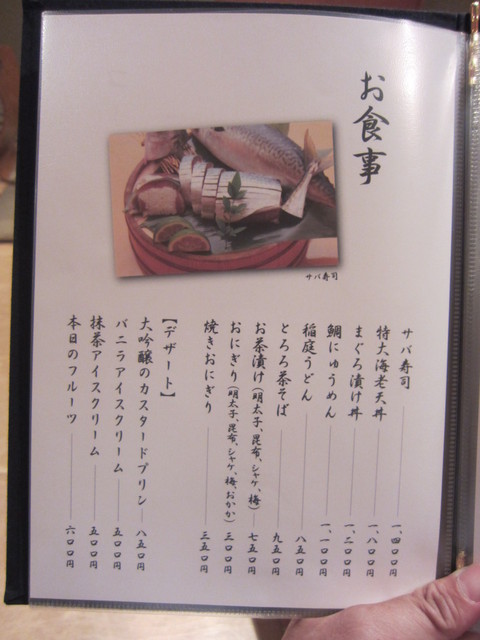 お食事
サバ寿司
サバ寿司 一、四〇〇円
特大海老天丼 一、八〇〇円
まぐろ漬け丼 一、二〇〇円
鯛にゅうめん 一、一〇〇円
稲庭うどん 八五〇円
とろろ茶そば 九五〇円
お茶漬け(明太子、昆布、シャケ、梅) 七五〇円
おにぎり(明太子、昆布、シャケ、梅、おかか) 三〇〇円
焼きおにぎり 三五〇円
【デザート】
大吟醸のカスタードプリン 八五〇円
バニラアイスクリーム 五〇〇円
抹茶アイスクリーム 五〇〇円
本日のフルーツ 六〇〇円